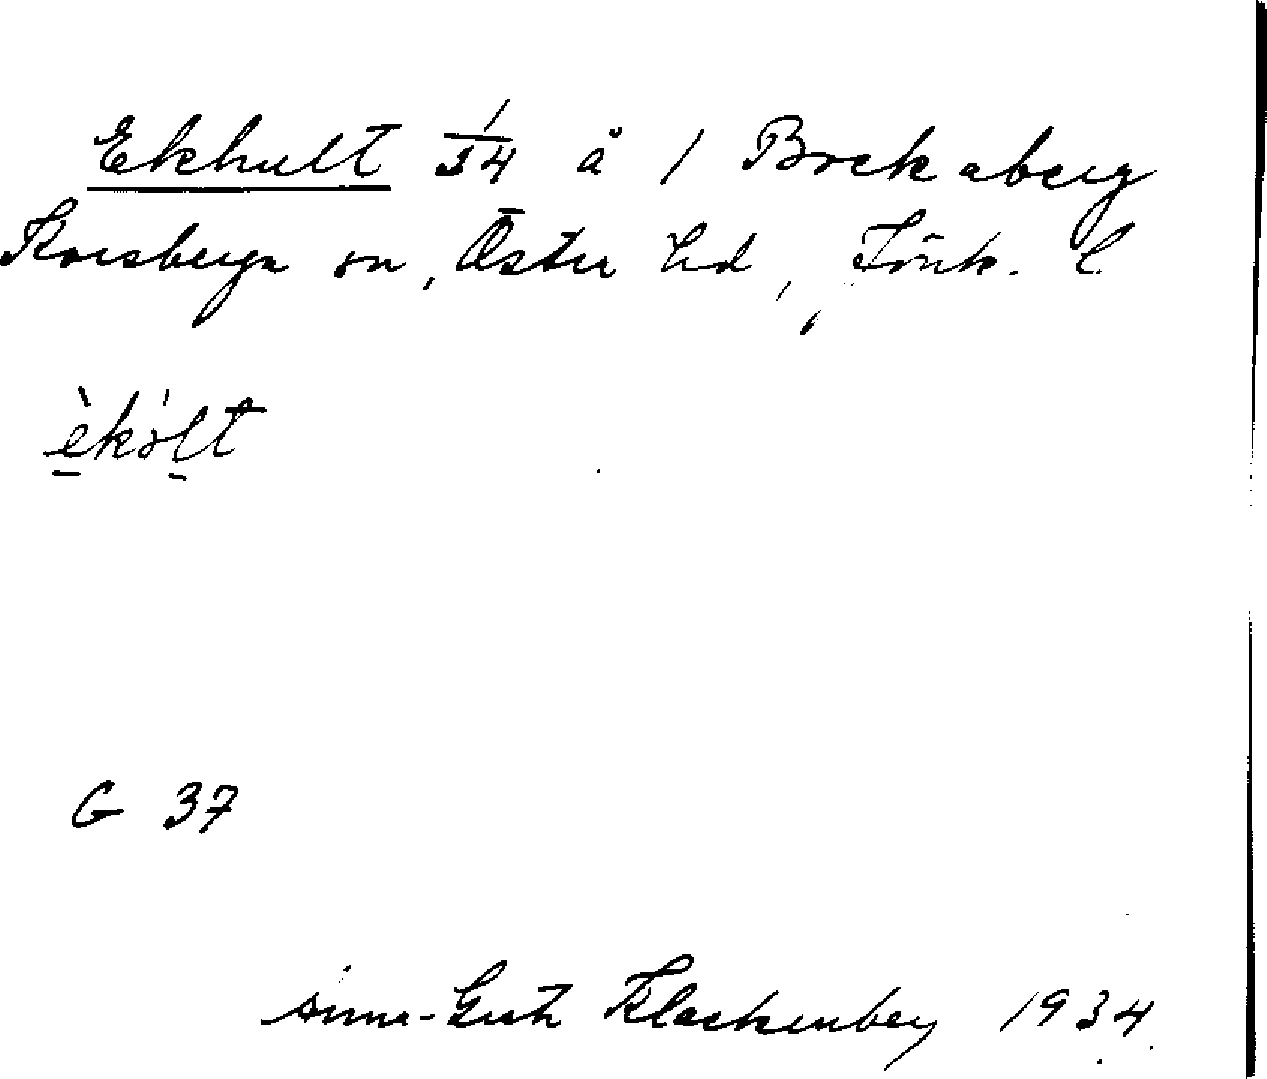 Ekhult 1/34 å 1 Bockaberg
Korsberga sn, Östra hd, Jönk. l
èkólt
G 37
Anna-Greta Klackenberg 1934